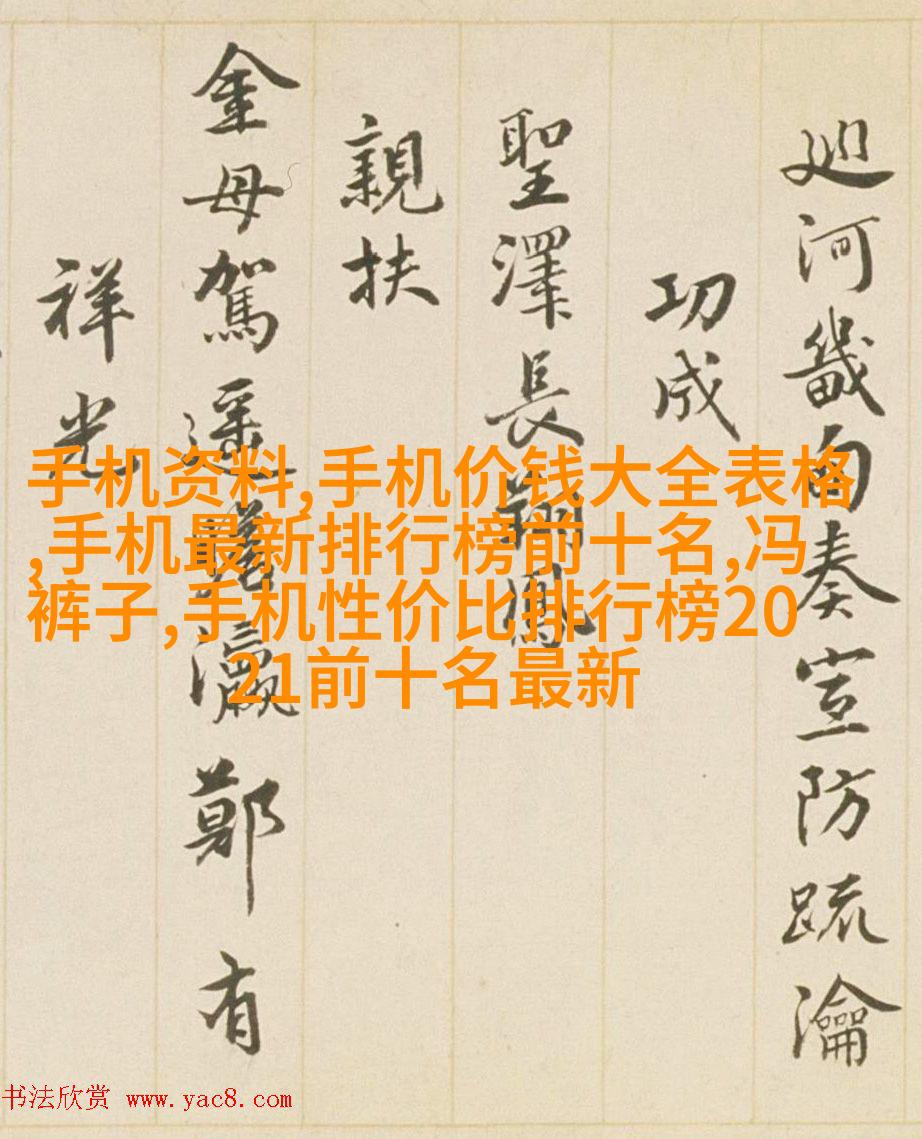 廵河畿甸奏宣防疏瀹
功成
聖澤長鳳
親扶
金母駕遥瀛鄭有
祥光
手机资料,手机价钱大全表格
,手机最新排行榜前十名,冯
裤子,手机性价比排行榜20
21前十名最新
书法欣赏 www.yac8.com